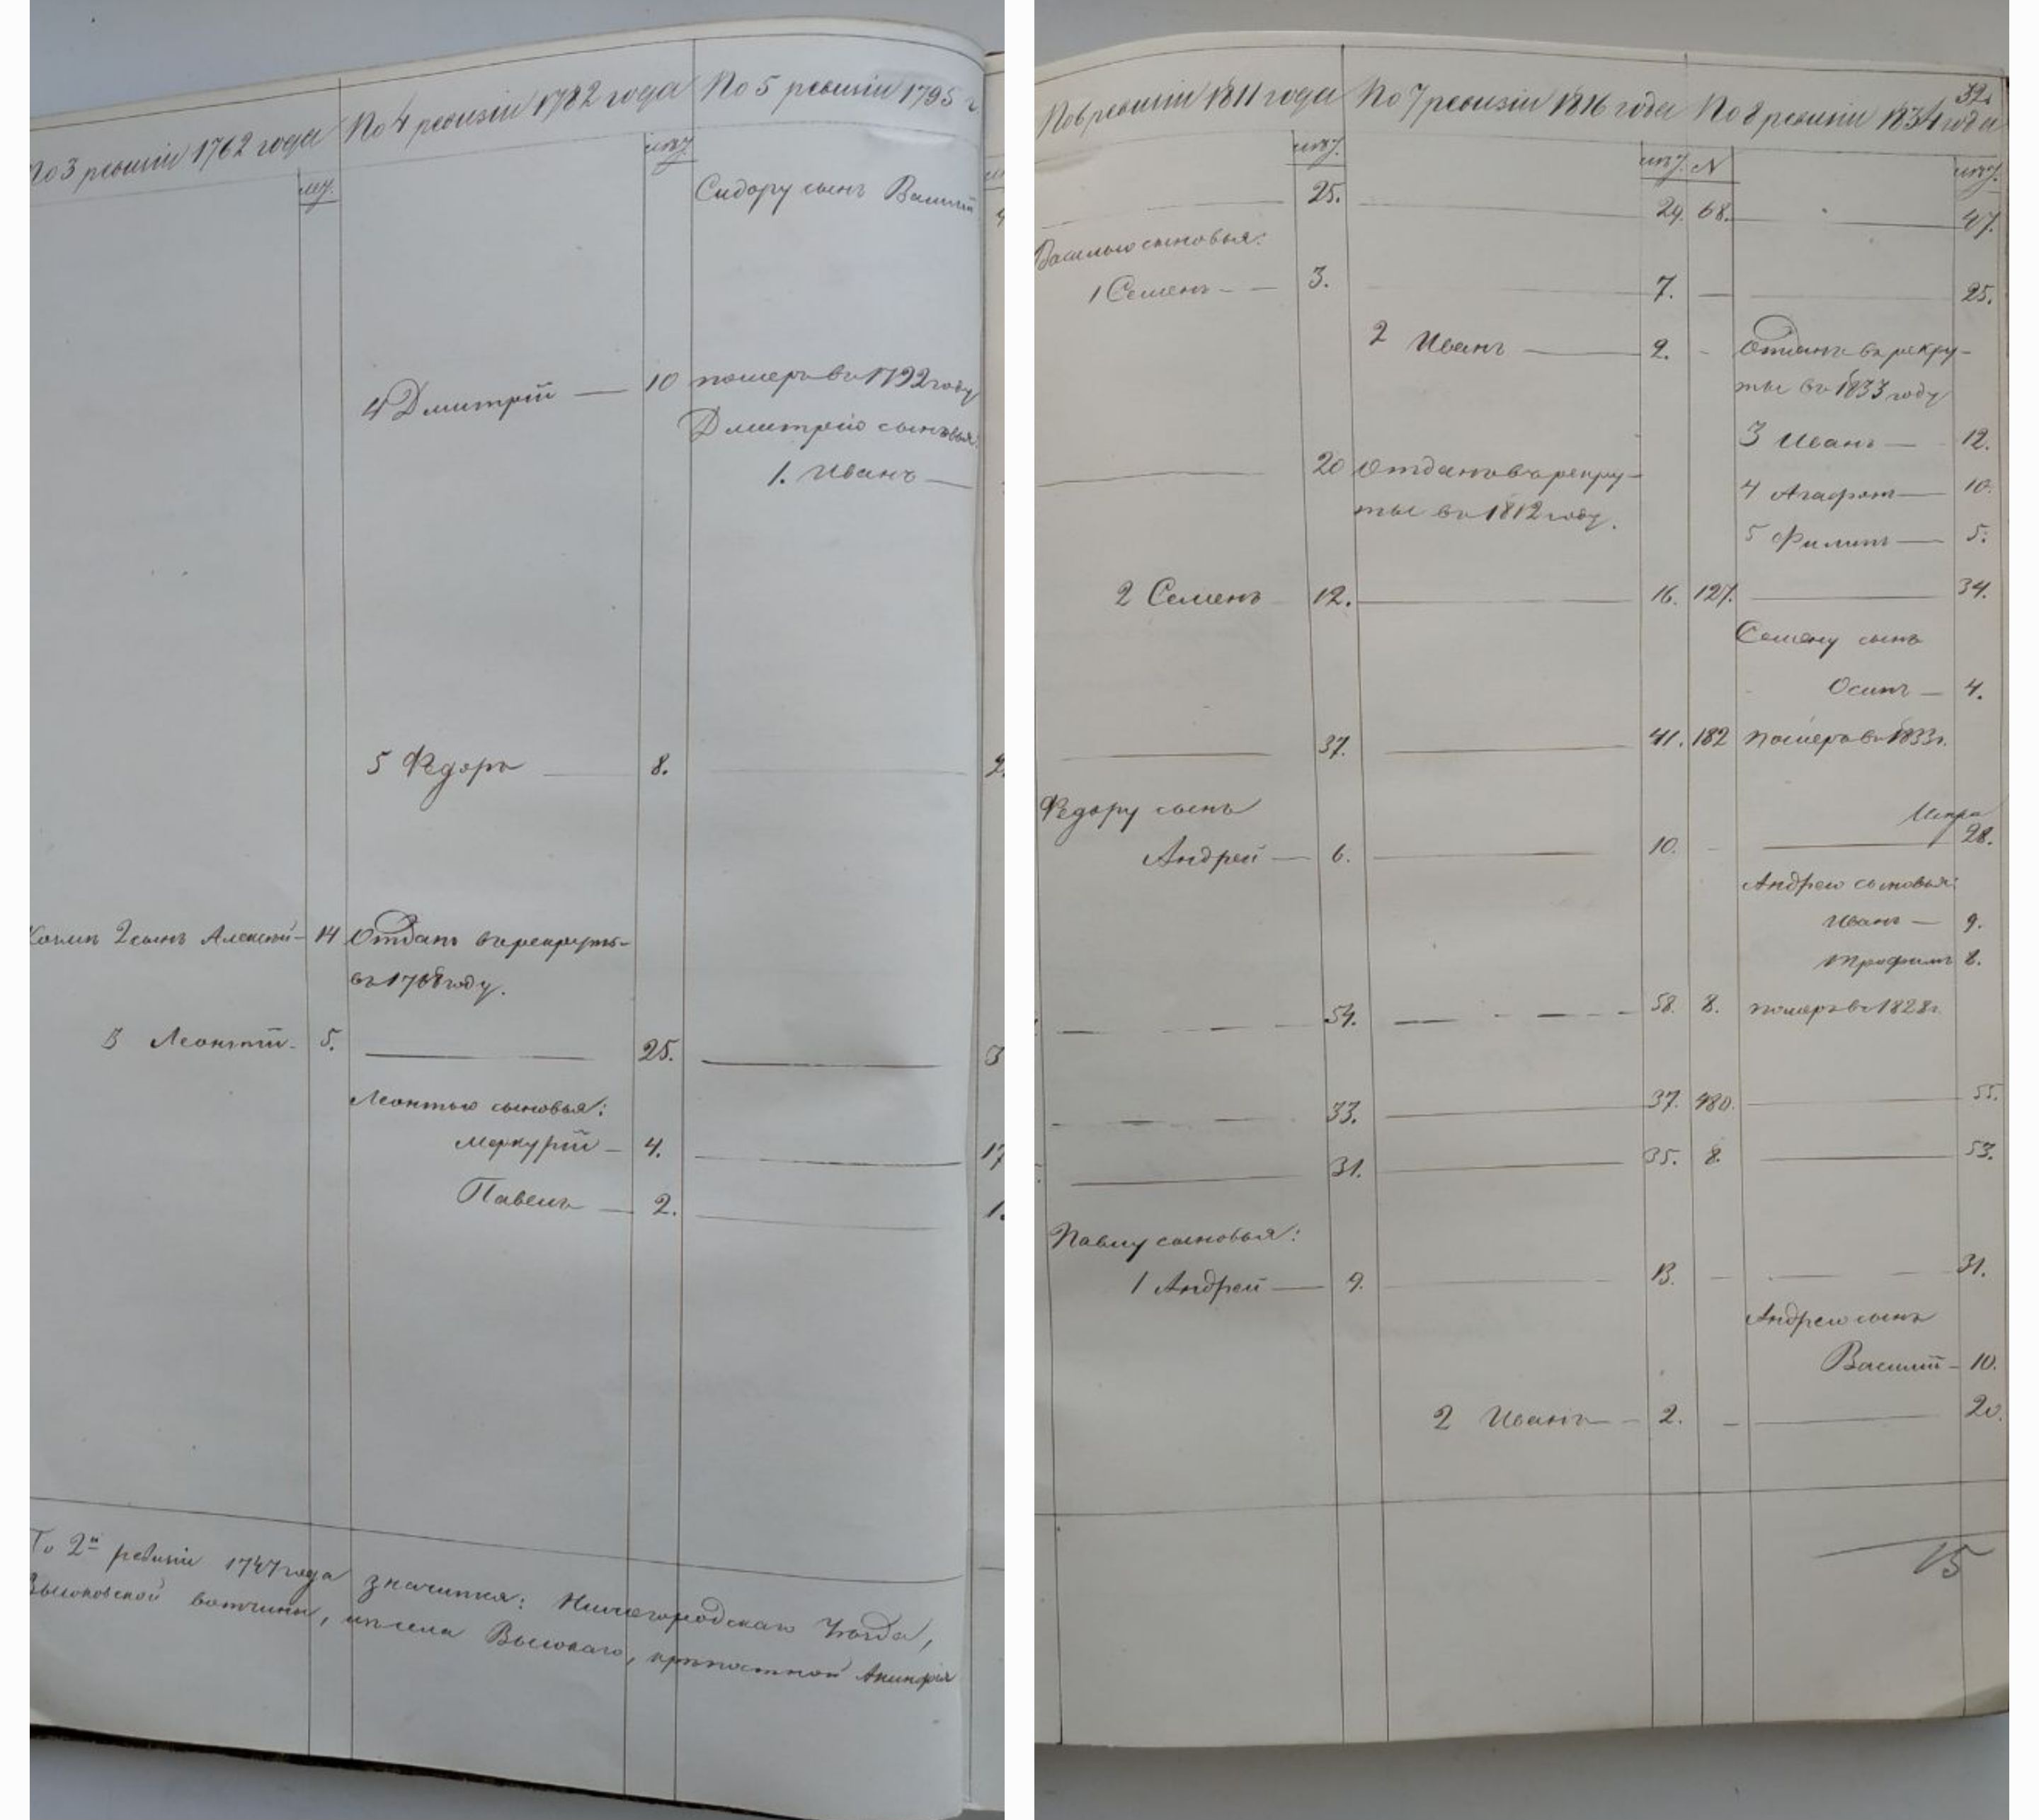 По 3 ревизіи 1762 года
По 4 ревизіи 1782 года
По 5 ревизіи 1795 г
Сидору сынъ Василій
4 Дмитрій — 10
померъ въ 1792 году
Дмитрію сыновья:
1. Иванъ —
5 Федоръ — 8. — 2
2 сынъ Алексѣй — 14
Отданъ въ рекруты
въ 1768 году.
3 Леонтій — 5. — 25. — 3
Леонтью сыновья:
Меркурій — 4. — 17
Павелъ — 2. — 1.
По 2й ревизіи 1747 года значится: Нижегородскаго Уѣзда,
Высоковской вотчины, изъ села Высокаго, крѣпостной
По 6 ревизіи 1811 года
По 7 ревизіи 1816 года
По 8 ревизіи 1834 года
32.
N
25. — 29. 68. — 47.
Василью сыновья:
1 Семенъ — 3. — 7. — 25.
2 Иванъ — 2. -
Отданъ въ рекру-
ты въ 1833 году
3 Иванъ — 12.
20
Отданъ въ рекру-
ты въ 1812 году.
4 Агафонъ — 10.
5 Филипъ — 5.
2 Семенъ 12. — 16. 127. — 34.
Семену сынъ
Осипъ — 4.
37. — 41. 182 померъ въ 1833 г.
Федору сынъ
Андрей — 6. — 10. - — 28.
Андрею сыновья:
Иванъ — 9.
Трофимъ 8.
54. — 58. 8. померъ въ 1828 г.
33. — 37. 480. — 55.
31. — 35. 8. — 53.
Павлу сыновья:
1 Андрей — 9. — 13. — 31.
Андрею сынъ
Василій — 10.
2 Иванъ — 2. - — 20.
15